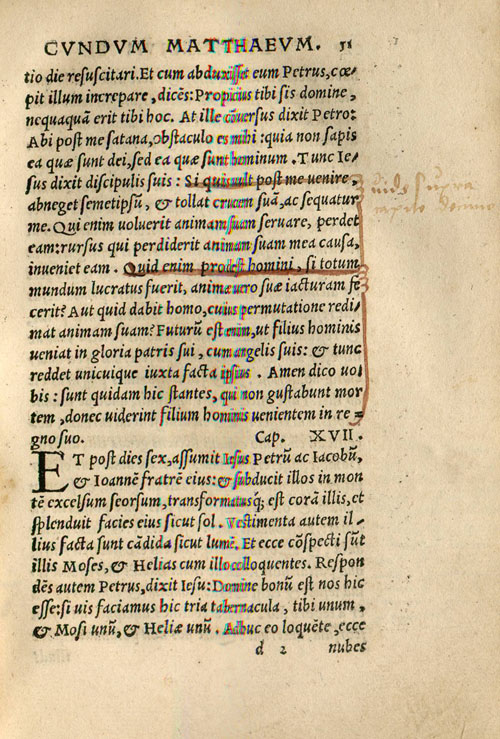 CVNDVM MATTHAEVM. 51
tio die resuscitari. Et cum abduxisset eum Petrus, cœ-
pit illum increpare, dicẽs: Propicius tibi sis domine,
nequaquã erit tibi hoc. At ille cõuersus dixit Petro:
Abi post me satana, obstaculo es mihi: quia non sapis
ea quæ sunt dei, sed ea quæ sunt hominum. Tunc Ie-
sus dixit discipulis suis: Si quis uult post me uenire,
abneget semetipsũ, & tollat crucem suã, ac sequatur
me. Qui enim uoluerit animam suam seruare, perdet
eam: rursus qui perdiderit animam suam mea causa,
inueniet eam. Quid enim prodest homini, si totum
mundum lucratus fuerit, animæ uero suæ iacturam fe
cerit? Aut quid dabit homo, cuius permutatione redi-
mat animam suam? Futurũ est enim, ut filius hominis
ueniat in gloria patris sui, cum angelis suis: & tunc
reddet unicuique iuxta facta ipsius. Amen dico uo-
bis: sunt quidam hic stantes, qui non gustabunt mor
tem, donec uiderint filium hominis uenientem in re-
gno suo. Cap. XVII.
ET post dies sex, assumit Iesus Petrũ ac Iacobũ,
& Ioannẽ fratrẽ eius: & subducit illos in mon
tẽ excelsum seorsum, transformatusq; est corã illis, et
splenduit facies eius sicut sol. Vestimenta autem il-
lius facta sunt cãdida sicut lumẽ. Et ecce cõspecti sũt
illis Moses, & Helias cum illo colloquentes. Respon
dẽs autem Petrus, dixit Iesu: Domine bonũ est nos hic
esse: si uis faciamus hic tria tabernacula, tibi unum,
& Mosi unũ, & Heliæ unũ. Adhuc eo loquẽte, ecce
d 2 nubes
uide supra